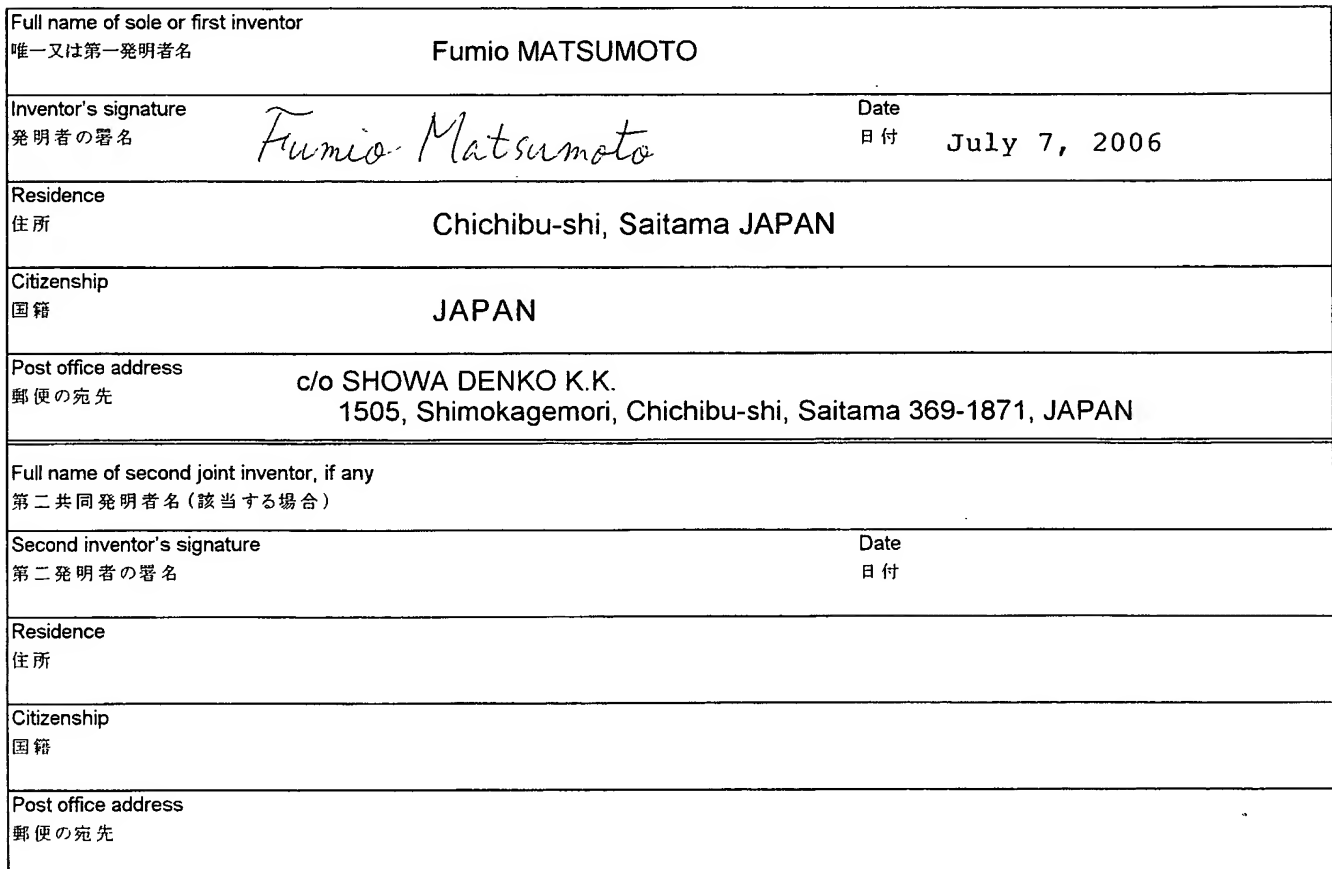 Full name of sole or first inventor
唯一又は第一発明者名 Fumio MATSUMOTO
Inventor's signature Date
発明者の署名 Fumio Matsumoto 日付 July 7, 2006
Residence
住所 Chichibu-shi, Saitama JAPAN
Citizenship
国籍 JAPAN
Post office address
郵便の宛先 c/o SHOWA DENKO K.K.
1505, Shimokagemori, Chichibu-shi, Saitama 369-1871, JAPAN
Full name of second joint inventor, if any
第二共同発明者名(該当する場合)
Second inventor's signature Date
第二発明者の署名 日付
Residence
住所
Citizenship
国籍
Post office address
郵便の宛先